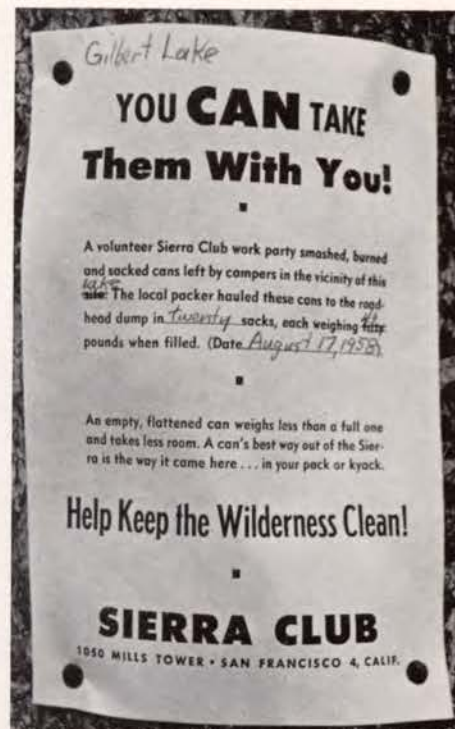 Gilbert Lake
YOU CAN TAKE
Them With You!
A volunteer Sierra Club work party smashed, burned
and sacked cans left by campers in the vicinity of this
lake
site. The local packer hauled these cans to the road-
head dump in twenty sacks, each weighing fifty
pounds when filled. (Date August 17, 1958)
An empty, flattened can weighs less than a full one
and takes less room. A can's best way out of the Sier-
ra is the way it came here . . . in your pack or kyack.
Help Keep the Wilderness Clean!
SIERRA CLUB
1050 MILLS TOWER • SAN FRANCISCO 4, CALIF.